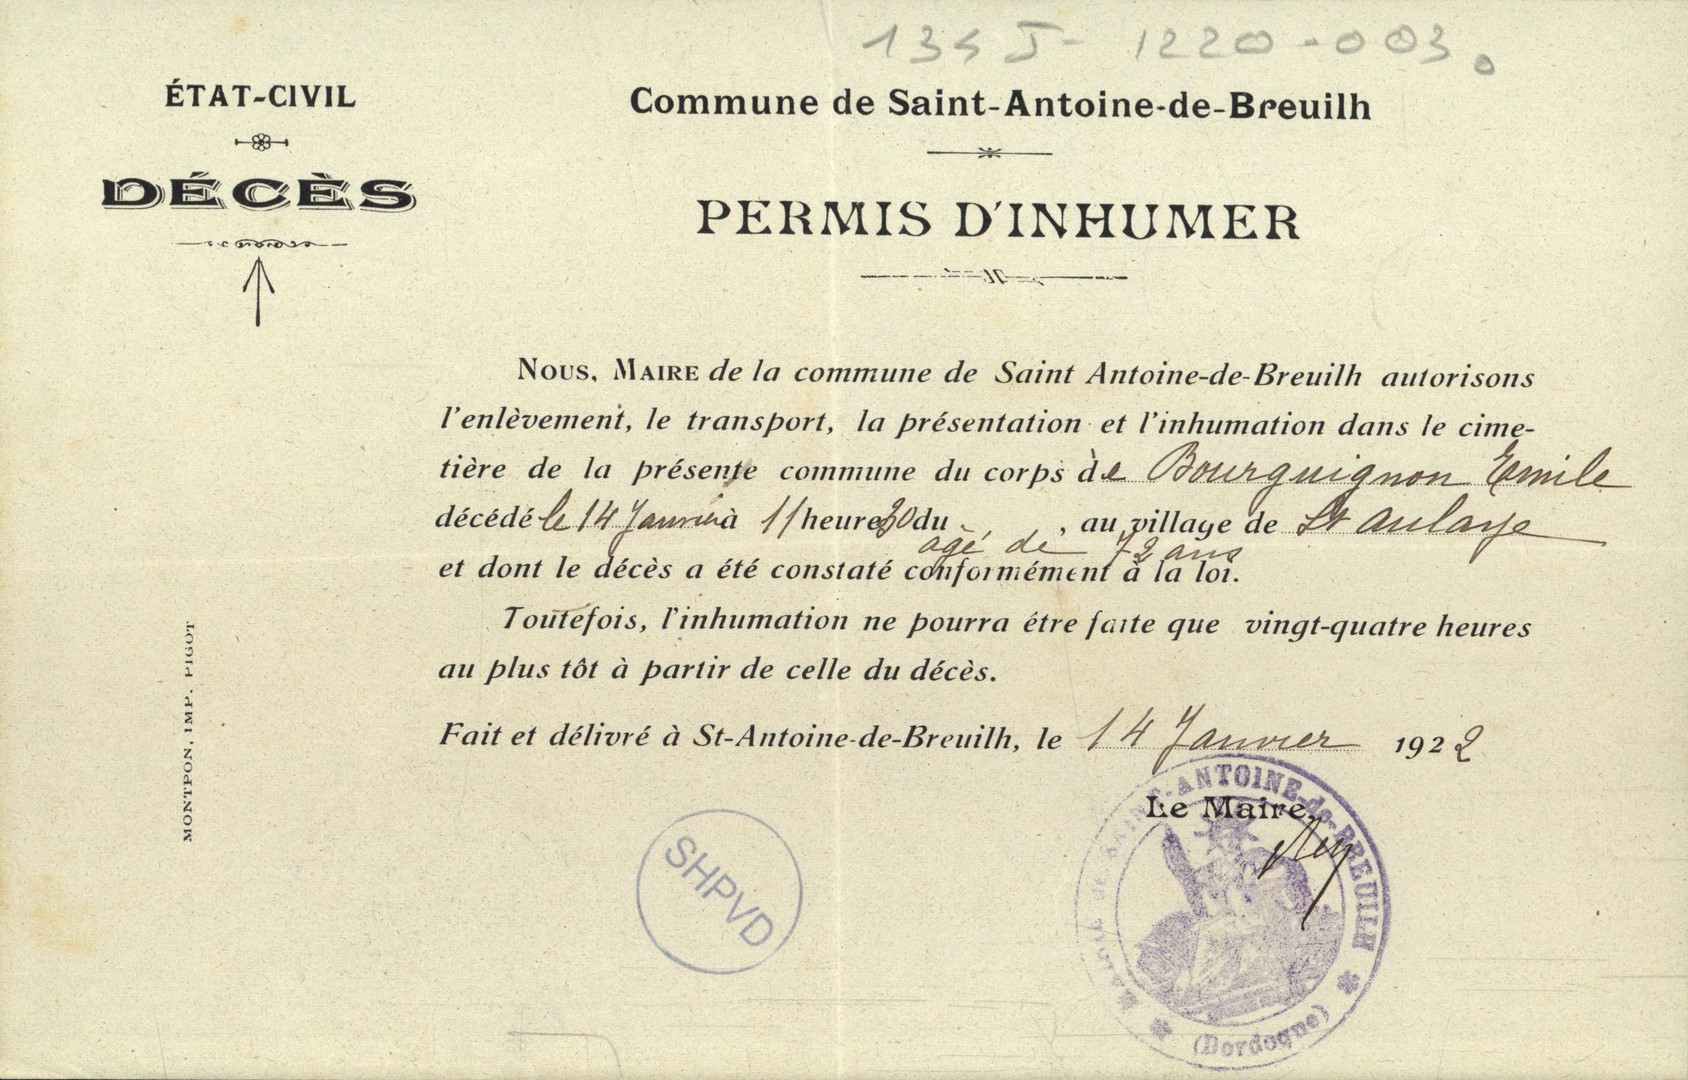 134 J - 1220-003.
ÉTAT-CIVIL
DÉCÈS
Commune de Saint-Antoine-de-Breuilh
PERMIS D'INHUMER
NOUS, MAIRE de la commune de Saint Antoine-de-Breuilh autorisons
l'enlèvement, le transport, la présentation et l'inhumation dans le cime-
tière de la présente commune du corps de Bourguignon Emile
décédé le 14 Janvier à 11 heures 30 du - , au village de St Aulaye
agé de 72 ans
et dont le décès a été constaté conformément à la loi.
Toutefois, l'inhumation ne pourra être faite que vingt-quatre heures
au plus tôt à partir de celle du décès.
Fait et délivré à St-Antoine-de-Breuilh, le 14 Janvier 1922
Le Maire,
MAIRIE DE SAINT-ANTOINE-de-BREUILH
(Dordogne)
SHPVD
MONTPON, IMP. PIGOT